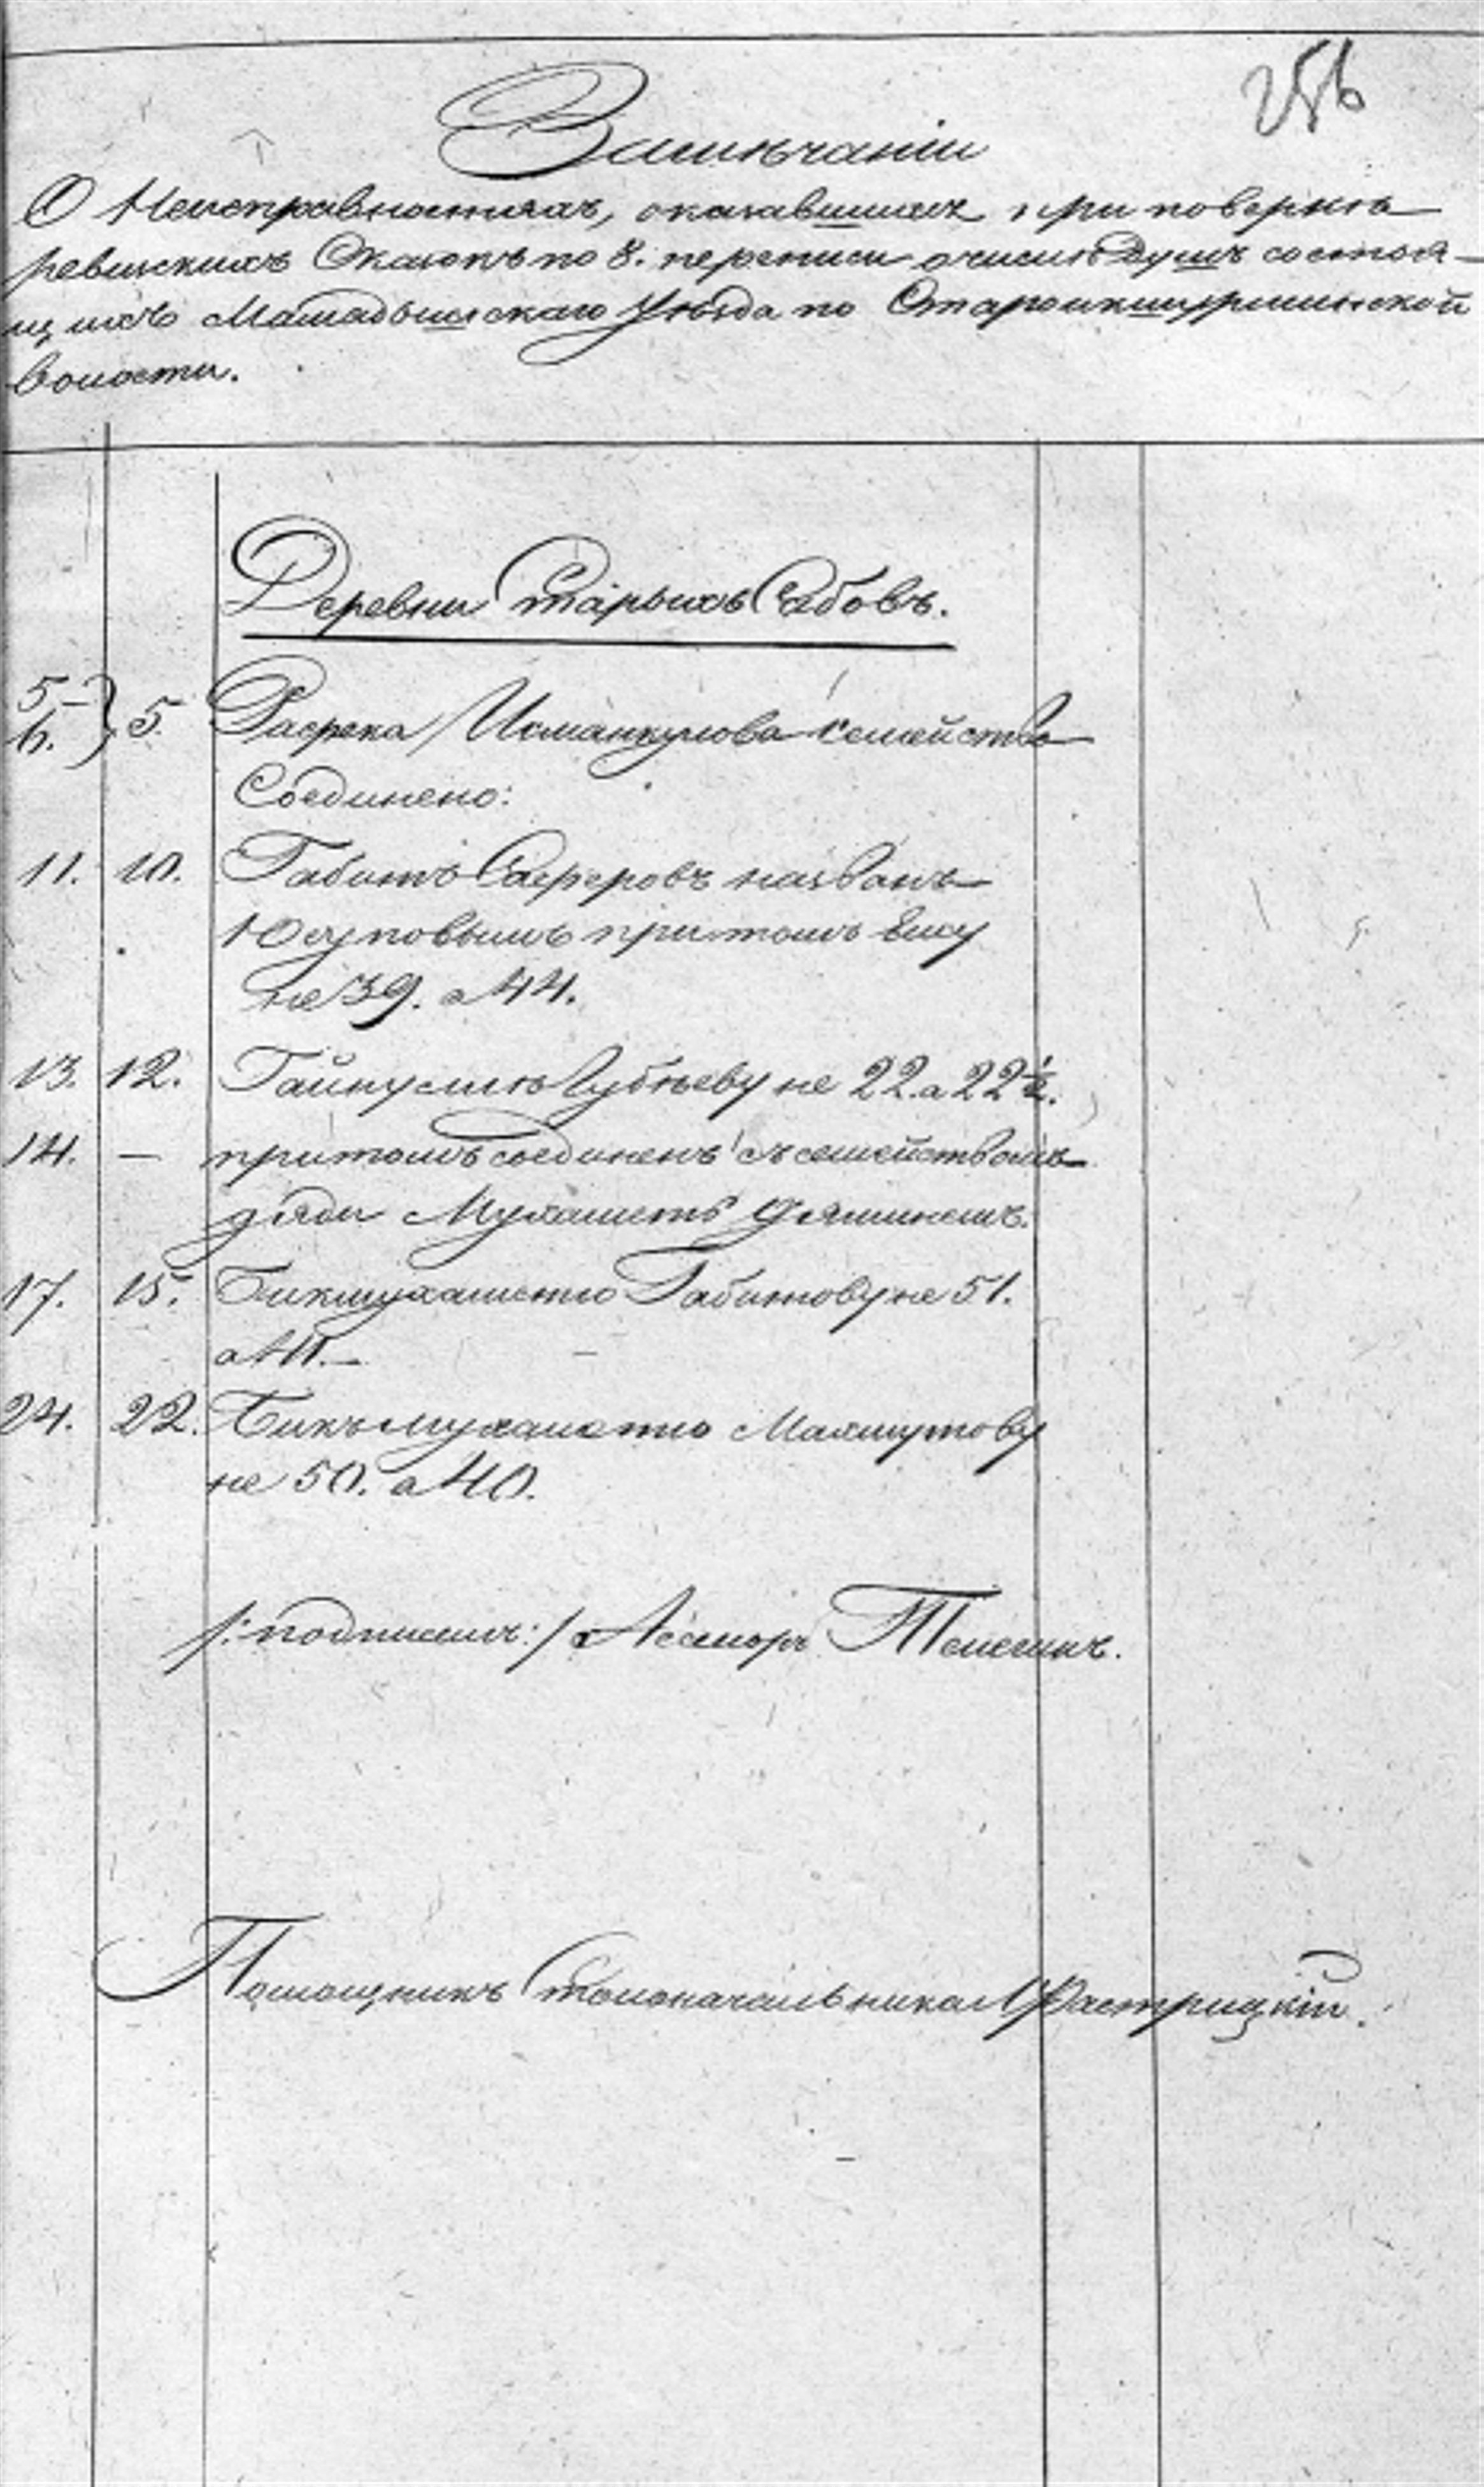 256
Замѣчаніи
О Неисправностяхъ, оказавшихся при повѣркѣ
ревискихъ Сказокъ по 8. переписи о числѣ Душъ состоя-
щихъ Мамадышскаго Уѣзда по Староикшурминской
волости.
Деревни Старыхъ Сабовъ.
5-6. 5. Расфека Исмангулова семейство
Соединено:
11. 10. Габитъ Сафаровъ названъ
Юсуповымъ притомъ ему
не 39. а 44.
13. 12. Гайнуслѣ Губѣеву не 22. а 22 ½.
14. — притомъ соединенъ съ семействомъ
дяди Мухаметъ
17. 15. Бикмухаметю Габитову не 51.
а 41.—
24. 22. Бикъмухаметю Махмутову
не 50. а 40.
/:подписалъ:/ Асесоръ
Помощникъ Столоначальника